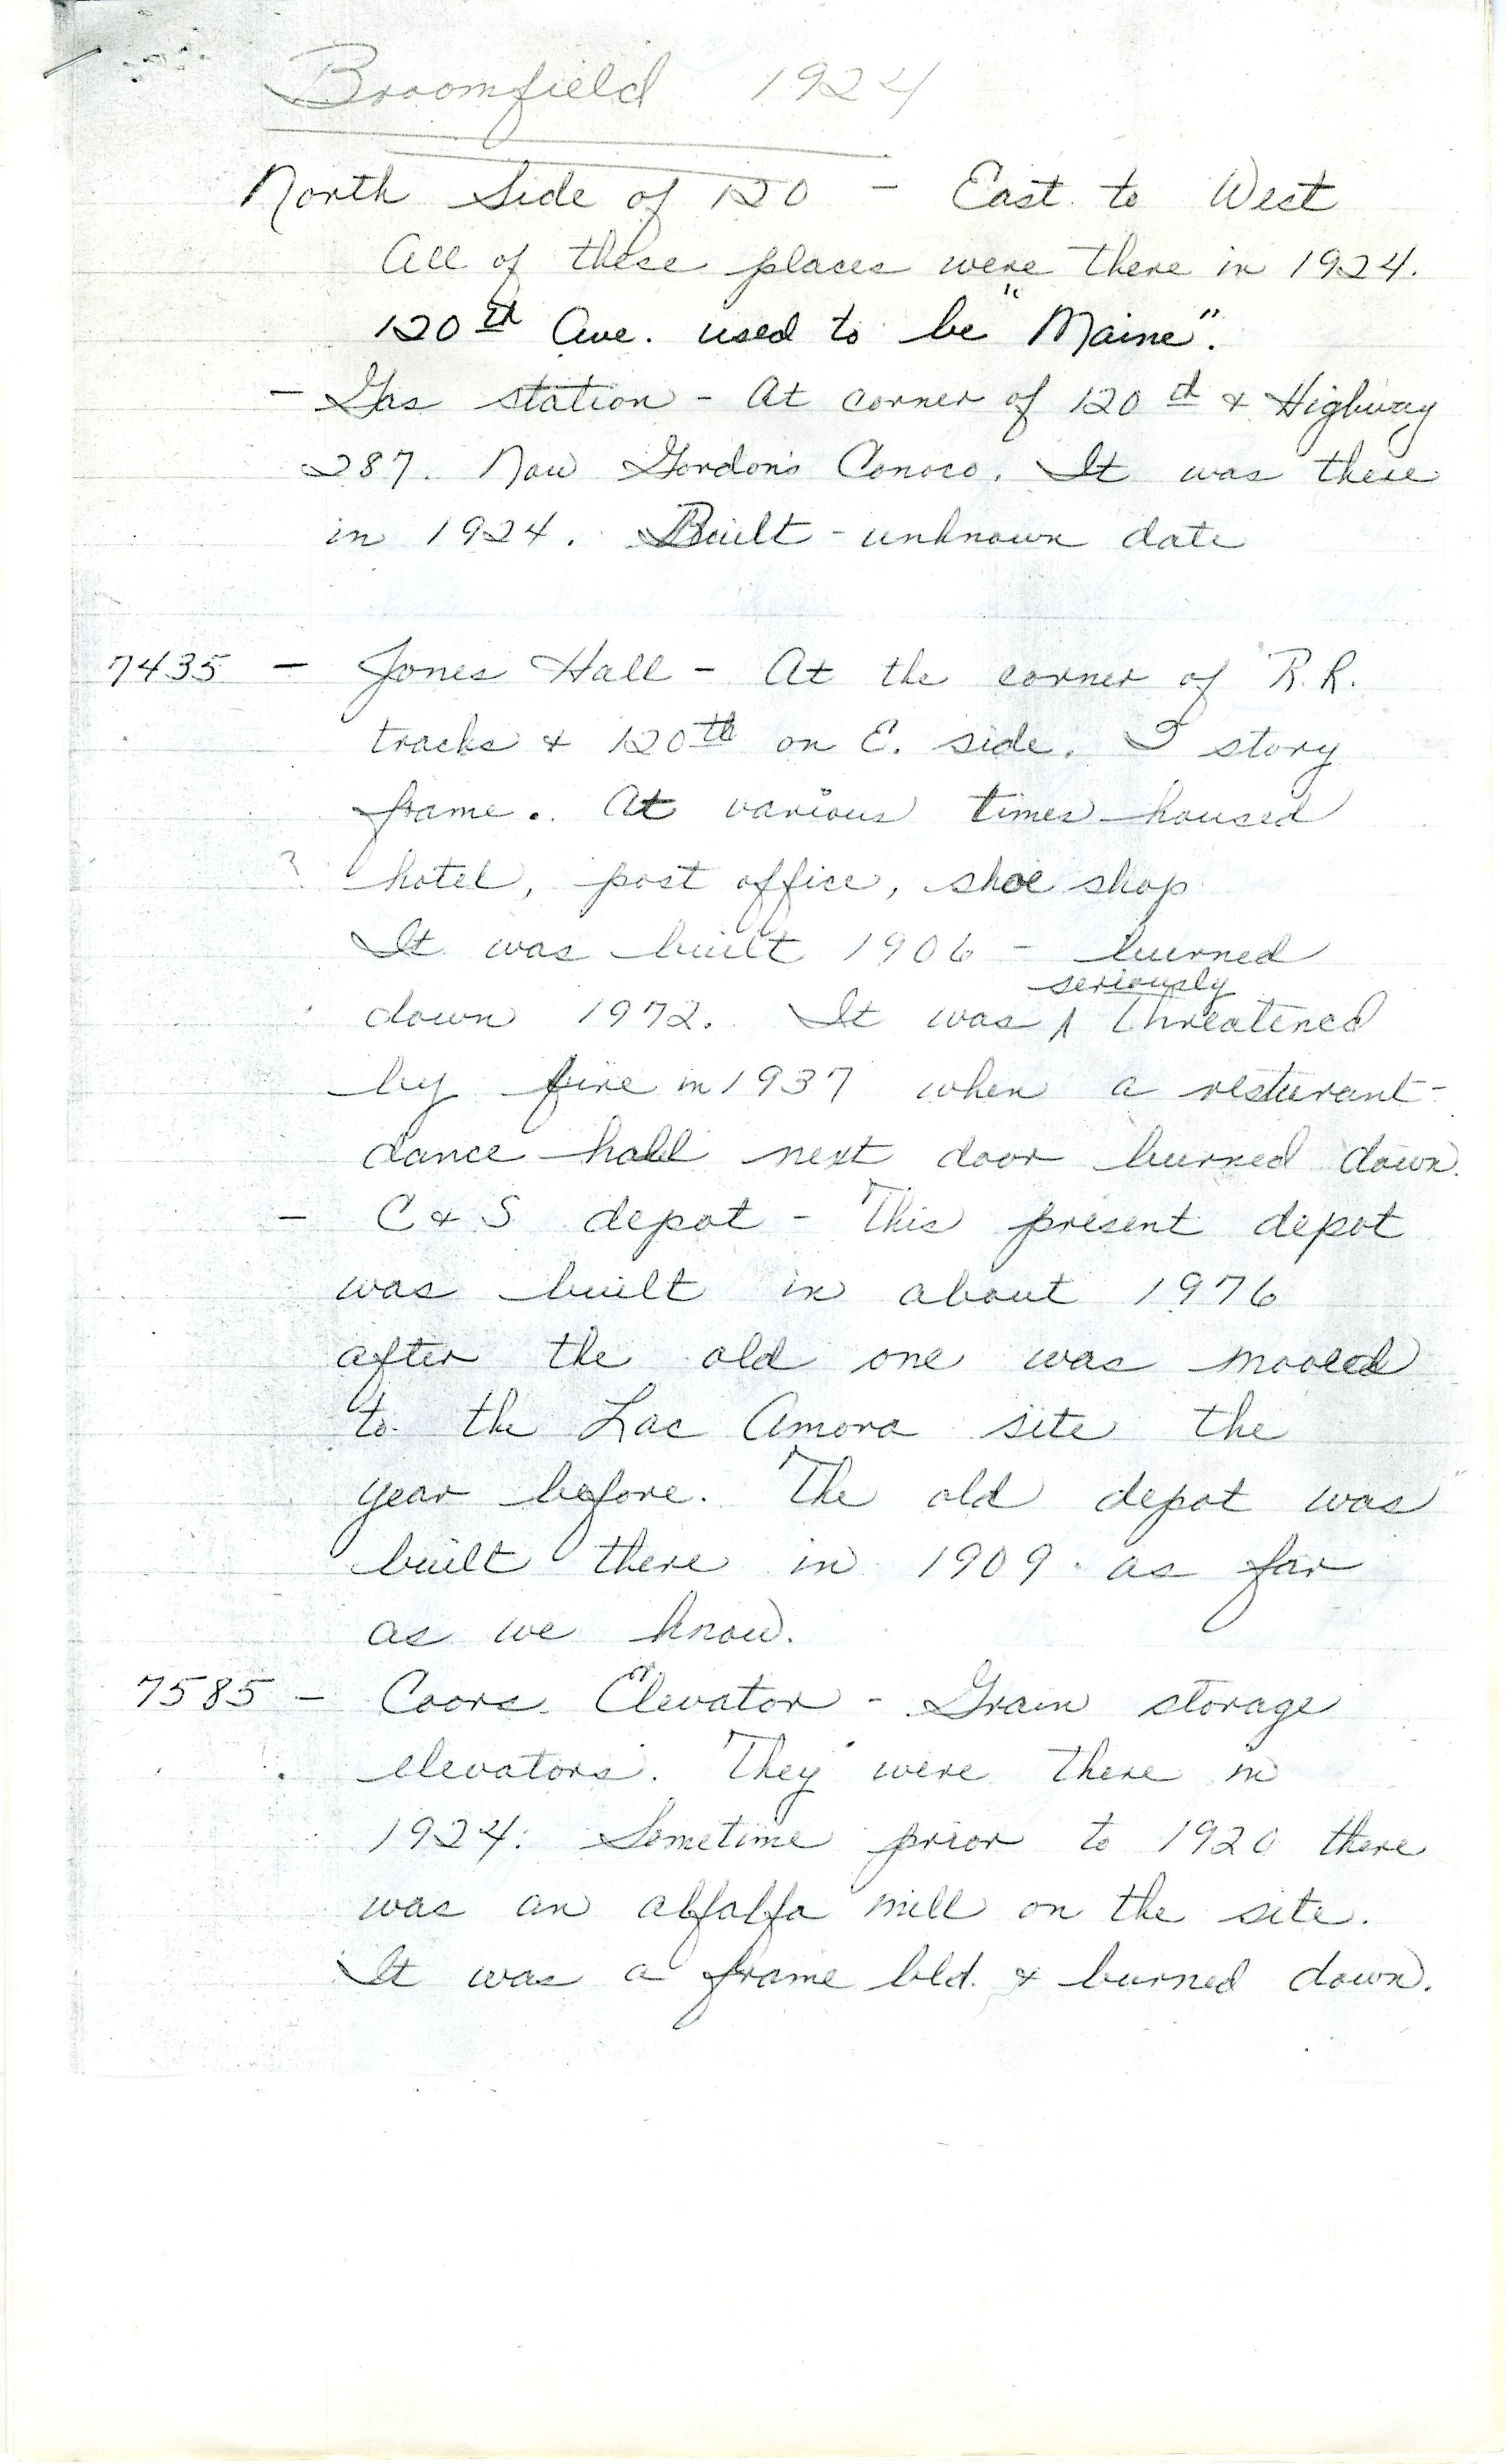 Broomfield 1924
North Side of 120 - East to West
All of these places were there in 1924.
120th Ave. used to be "Maine".
- Gas station - At corner of 120th & Highway
287. Now Gordon's Conoco. It was there
in 1924. Built - unknown date
7435 - Jones Hall - At the corner of R.R.
tracks & 120th on E. side. 2 story
frame. At various times housed
hotel, post office, shoe shop
It was built 1906 - burned
seriously
down 1972. It was ^ threatened
by fire in 1937 when a resturant-
dance hall next door burned down.
- C & S depot - This present depot
was built in about 1976
after the old one was mooved
to the Lac Amora site the
year before. The old depot was
built there in 1909 as far
as we know.
7585 - Coors Elevator - Grain storage
elevators. They were there in
1924. Sometime prior to 1920 there
was an alfalfa mill on the site.
It was a frame bld. & burned down.